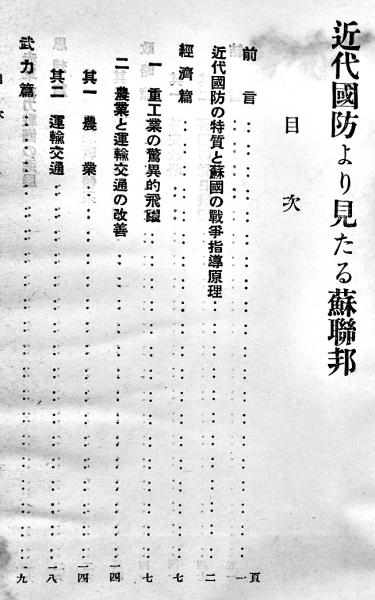 近代國防より見たる蘇聯邦
目次
前言……………一頁
近代國防の特質と蘇國の戰爭指導原理……………二
經濟篇……………七
一 重工業の驚異的飛躍……………七
二 農業と運輸交通の改善……………一四
其一 農業……………一四
其二 運輸交通……………一八
武力篇……………九
目次